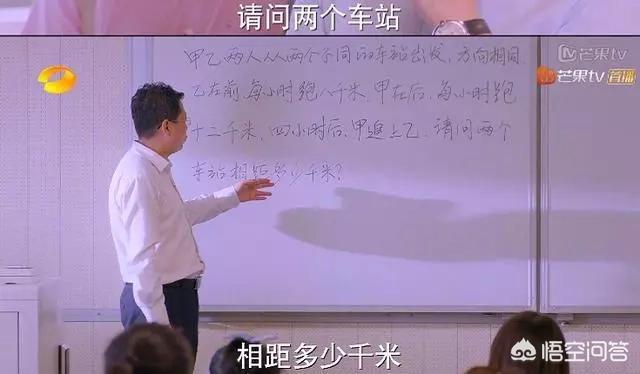 请问两个车站
甲乙两人从两个不同的车站出发,方向相同
乙在前,每小时跑八千米,甲在后,每小时跑
十二千米,四小时后,甲追上乙,请问两个
车站相距多少千米?
芒果tv
芒果tv 首播
相距多少千米
悟空问答